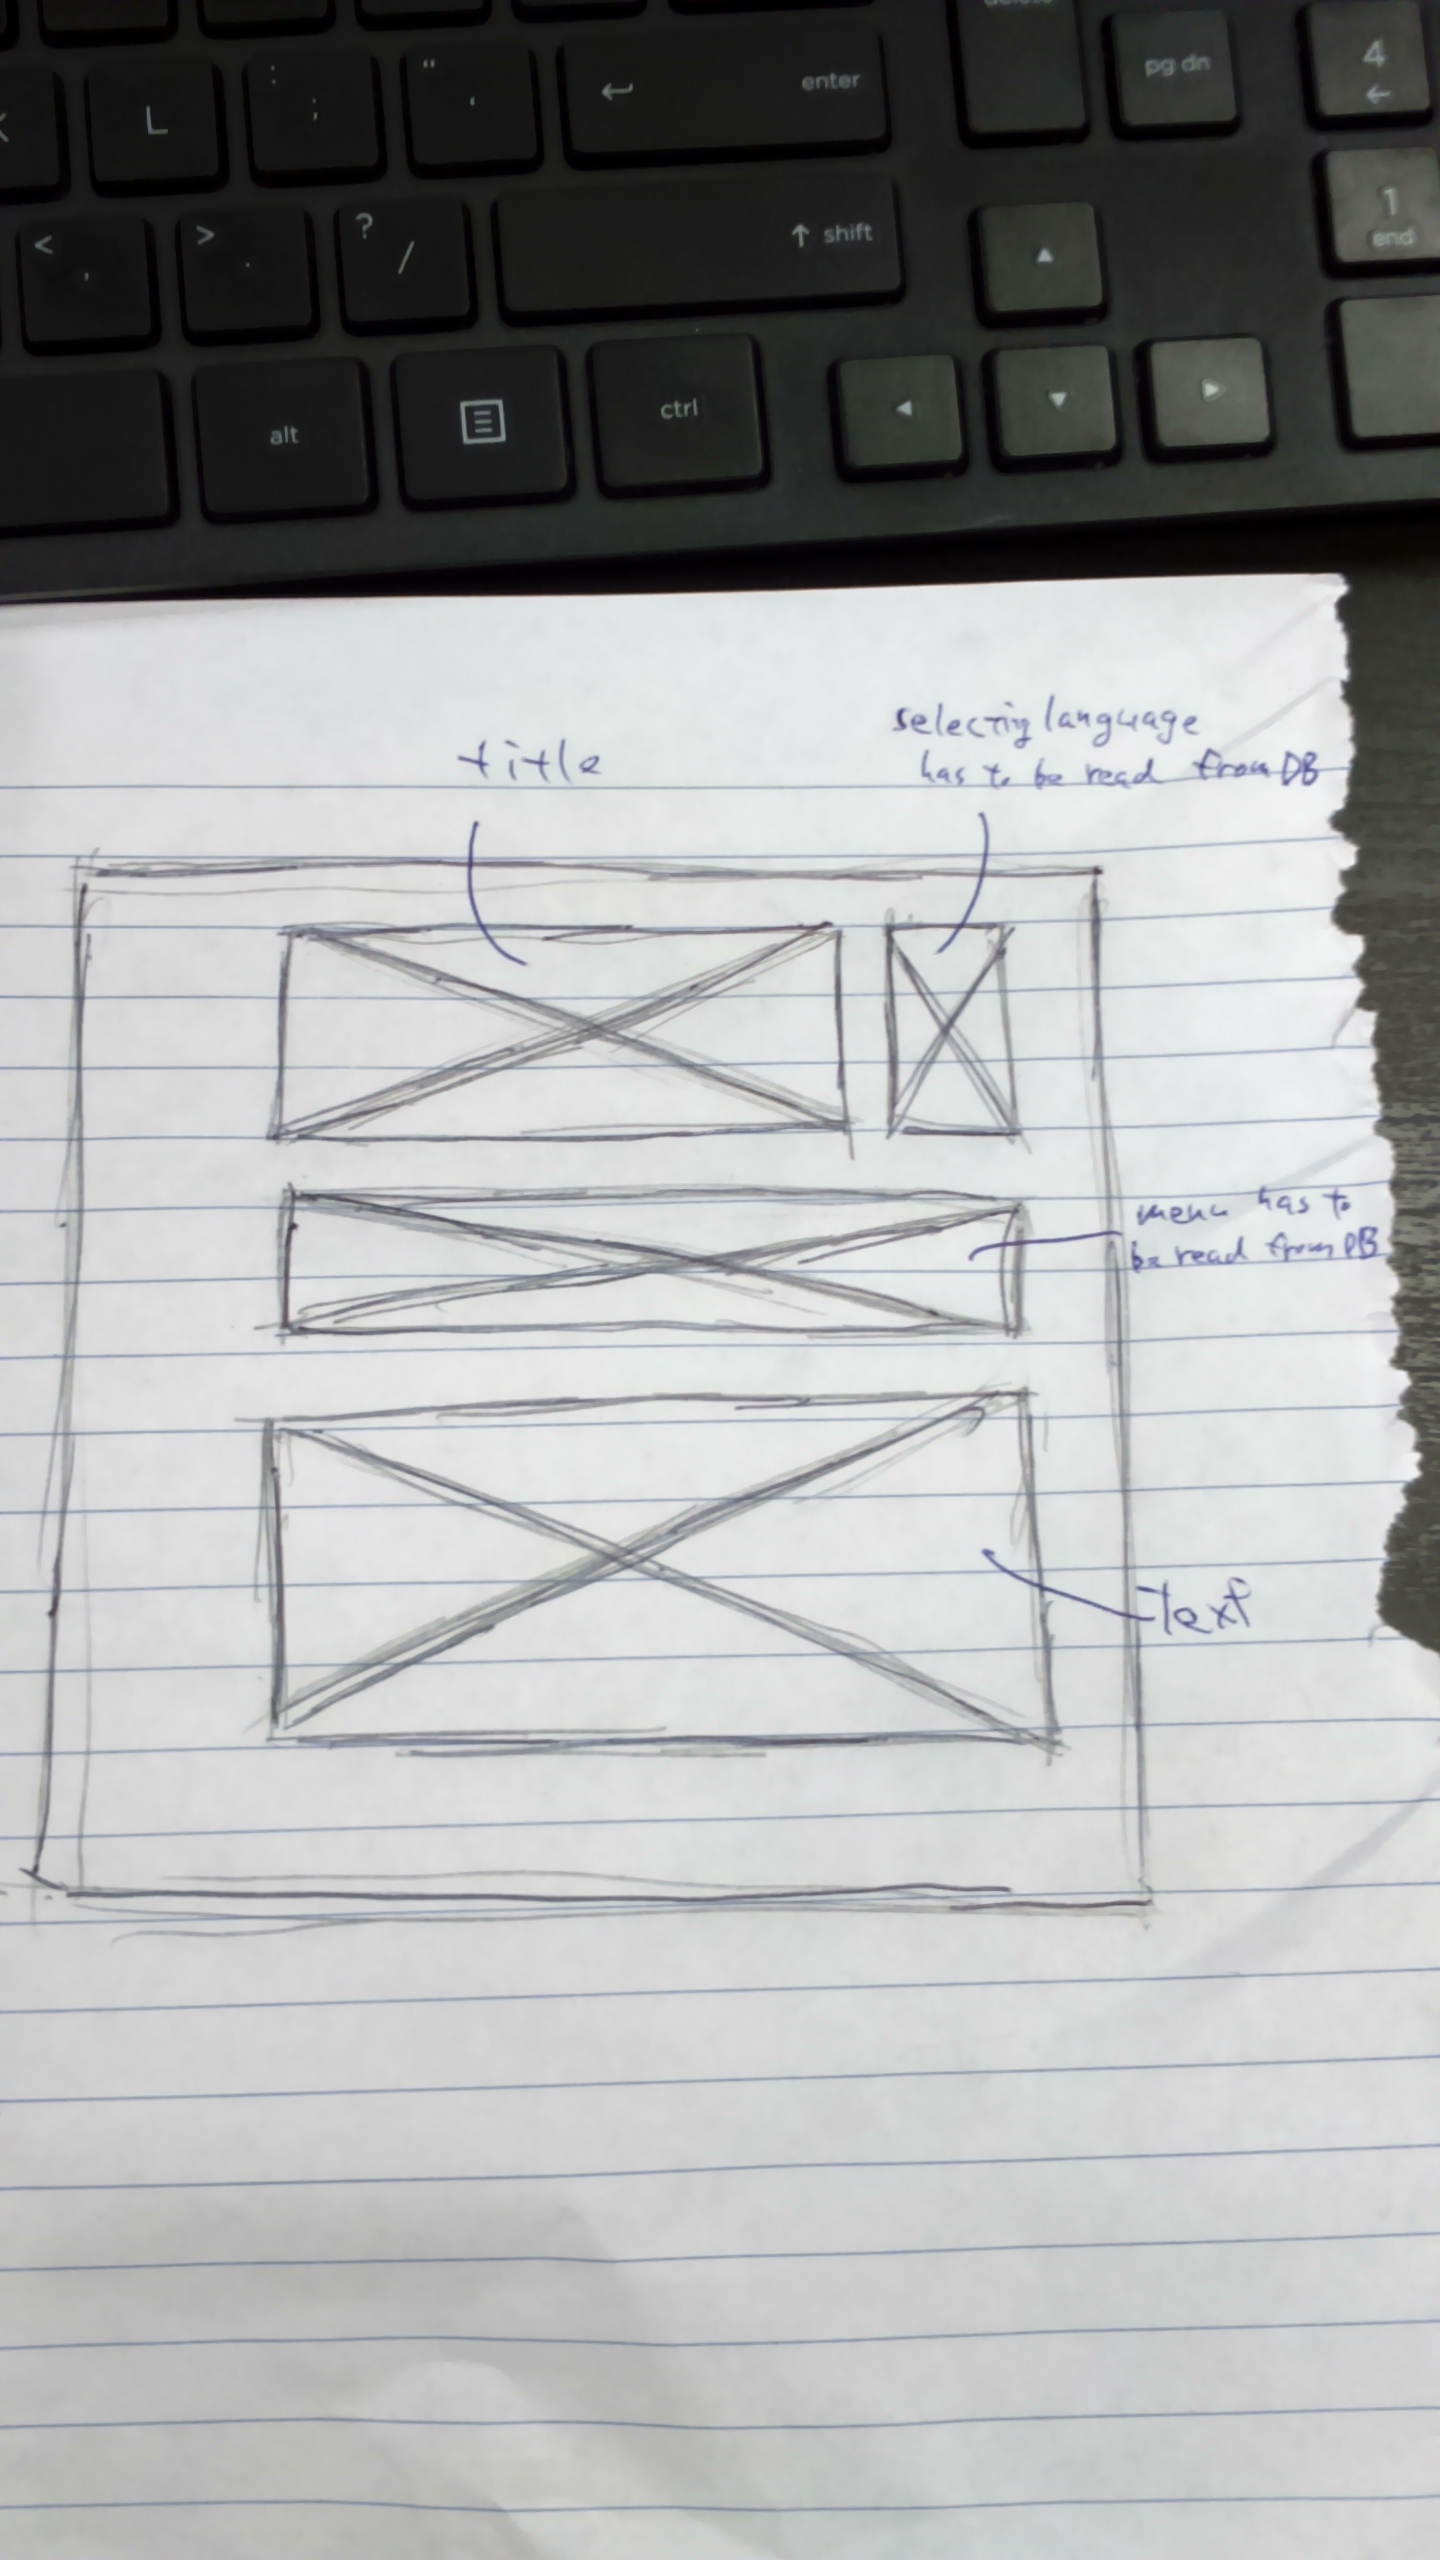 delete
pg dn
4
←
L
:
;
"
'
↵ enter
1
end
<
,
>
.
?
/
↑ shift
▲
alt
ctrl
◀
▼
▶
title
selecting language
has to be read from DB
menu has to
be read from DB
Text